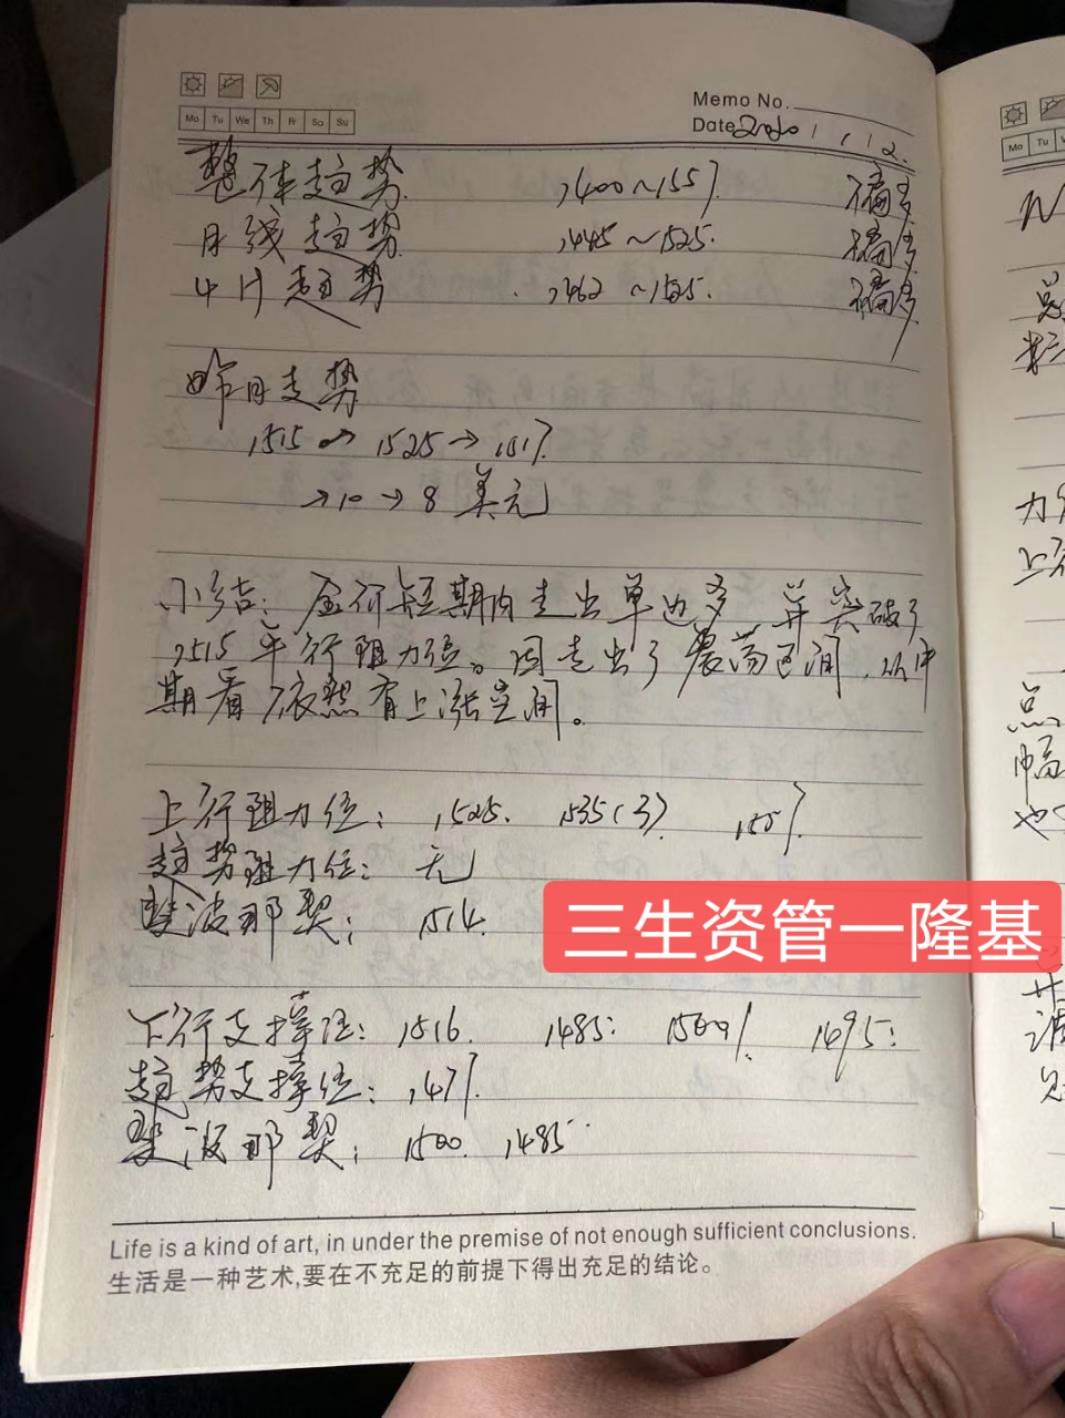 Memo No.
Mo Tu We Th Fr Sa Su
Date 2020 / 1 / 2.
整体趋势. 1400~1557. 偏多
月线趋势. 1445~1525. 偏多
4H趋势 1462~1525. 偏多
昨日走势
1515 → 1525 → 1517.
→10→8 美元
小结: 金价短期内走出单边多 并突破了
1515平行阻力位。因走出了震荡区间,从中
期看 依然有上涨空间。
上行阻力位: 1525. 1535(3). 1557.
趋势阻力位: 无
斐波那契: 1514.
三生资管一隆基
下行支撑位: 1516. 1485: 1500/. 1495:
趋势支撑位: 1471.
斐波那契: 1500. 1485
Life is a kind of art, in under the premise of not enough sufficient conclusions.
生活是一种艺术,要在不充足的前提下得出充足的结论。
Mo Tu